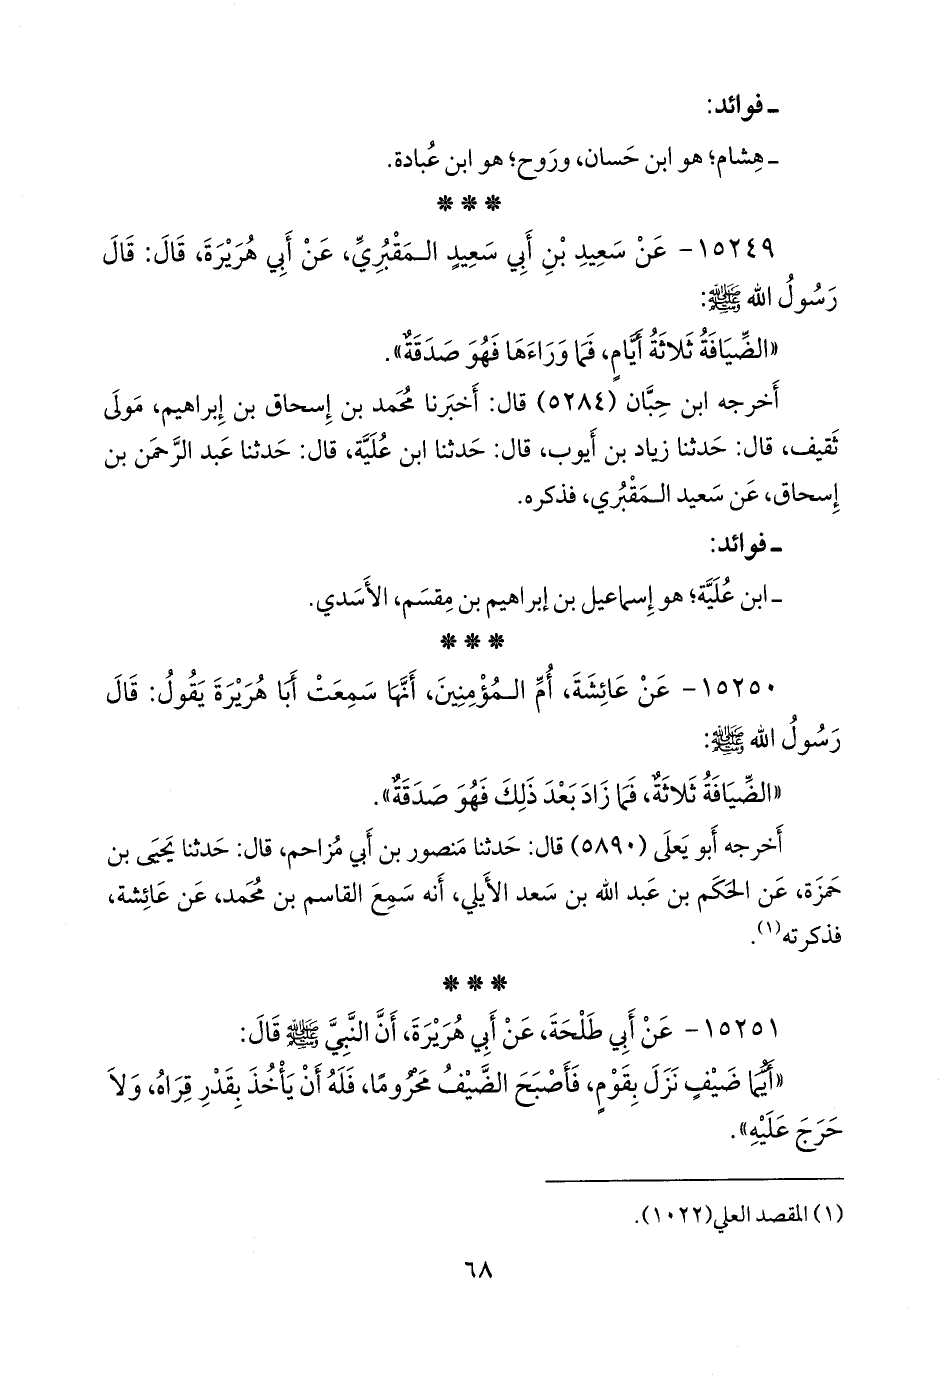 ـ فوائد:
ـ هِشام؛ هو ابن حَسان، ورَوح؛ هو ابن عُبادة.
* * *
١٥٢٤٩- عَنْ سَعِيدِ بْنِ أَبِي سَعِيدٍ الـمَقْبُرِيِّ، عَنْ أَبِي هُرَيْرَةَ، قَالَ: قَالَ
رَسُولُ الله ﷺ:
«الضِّيَافَةُ ثَلاثَةُ أَيَّامٍ، فَمَا وَرَاءَهَا فَهُوَ صَدَقَةٌ».
أَخرجه ابن حِبَّان (٥٢٨٤) قال: أَخبَرنا مُحَمد بن إِسحاق بن إِبراهيم، مَولَى
ثَقيف، قال: حَدثنا زياد بن أَيوب، قال: حَدثنا ابن عُلَيَّة، قال: حَدثنا عَبد الرَّحمَن بن
إِسحاق، عَن سَعيد الـمَقْبُري، فذكره.
ـ فوائد:
ـ ابن عُلَيَّة؛ هو إِسماعيل بن إبراهيم بن مِقسَم، الأَسَدي.
* * *
١٥٢٥٠- عَنْ عَائِشَةَ، أُمِّ الـمُؤْمِنِينَ، أَنَّهَا سَمِعَتْ أَبَا هُرَيْرَةَ يَقُولُ: قَالَ
رَسُولُ الله ﷺ:
«الضِّيَافَةُ ثَلاثَةٌ، فَمَا زَادَ بَعْدَ ذَلِكَ فَهُوَ صَدَقَةٌ».
أَخرجه أَبو يَعلَى (٥٨٩٠) قال: حَدثنا مَنصور بن أَبي مُزاحم، قال: حَدثنا يَحيَى بن
حَمزَة، عَن الحَكَم بن عَبد الله بن سَعد الأَيلي، أَنه سَمِعَ القاسم بن مُحَمد، عَن عَائِشة،
فذكرته(١).
* * *
١٥٢٥١- عَنْ أَبِي طَلْحَةَ، عَنْ أَبِي هُرَيْرَةَ، أَنَّ النَّبِيَّ ﷺ قَالَ:
«أَيُّمَا ضَيْفٍ نَزَلَ بِقَوْمٍ، فَأَصْبَحَ الضَّيْفُ مَحْرُومًا، فَلَهُ أَنْ يَأْخُذَ بِقَدْرِ قِرَاهُ، وَلاَ
حَرَجَ عَلَيْهِ».
(١) المقصد العلي(١٠٢٢).
٦٨